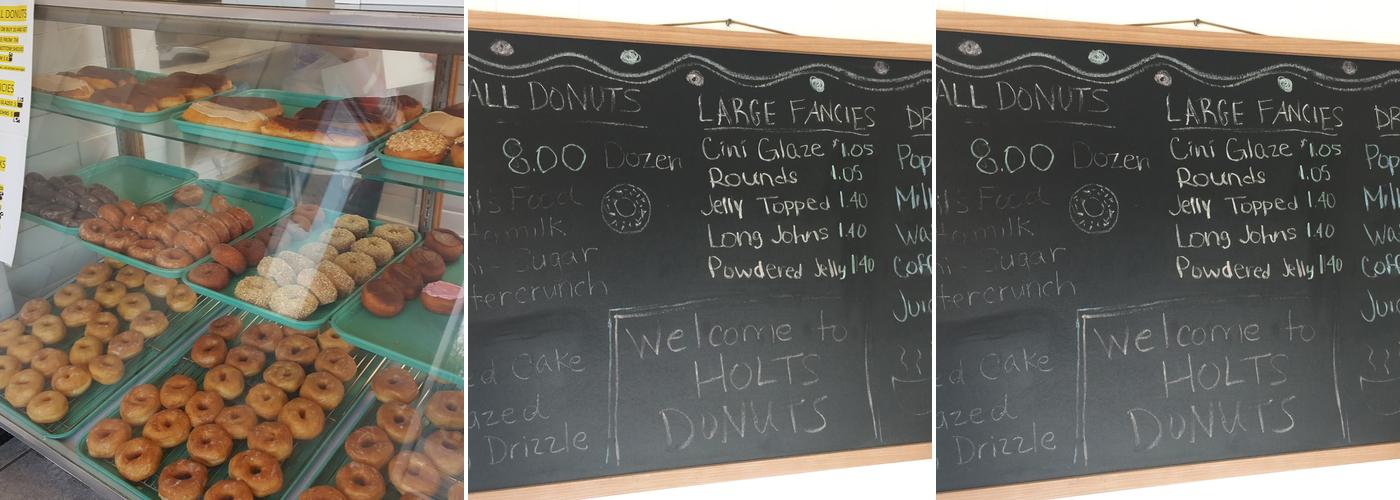 ALL DONUTS
ALL DONUTS
8.00 Dozen
Food
milk
Sugar
tercrunch
Cake
azed
Drizzle
LARGE FANCIES
Cini Glaze $1.05
Rounds 1.05
Jelly Topped 1.40
Long Johns 1.40
Powdered Jelly 1.40
Welcome to
HOLTS
DONUTS
DR
Pop
Mil
Wa
Coff
Juic
ALL DONUTS
8.00 Dozen
il's Food
milk
Sugar
tercrunch
d Cake
azed
Drizzle
LARGE FANCIES
Cini Glaze $1.05
Rounds 1.05
Jelly Topped 1.40
Long Johns 1.40
Powdered Jelly 1.40
Welcome to
HOLTS
DONUTS
DR
Pop
Milk
Wat
Coff
Juic